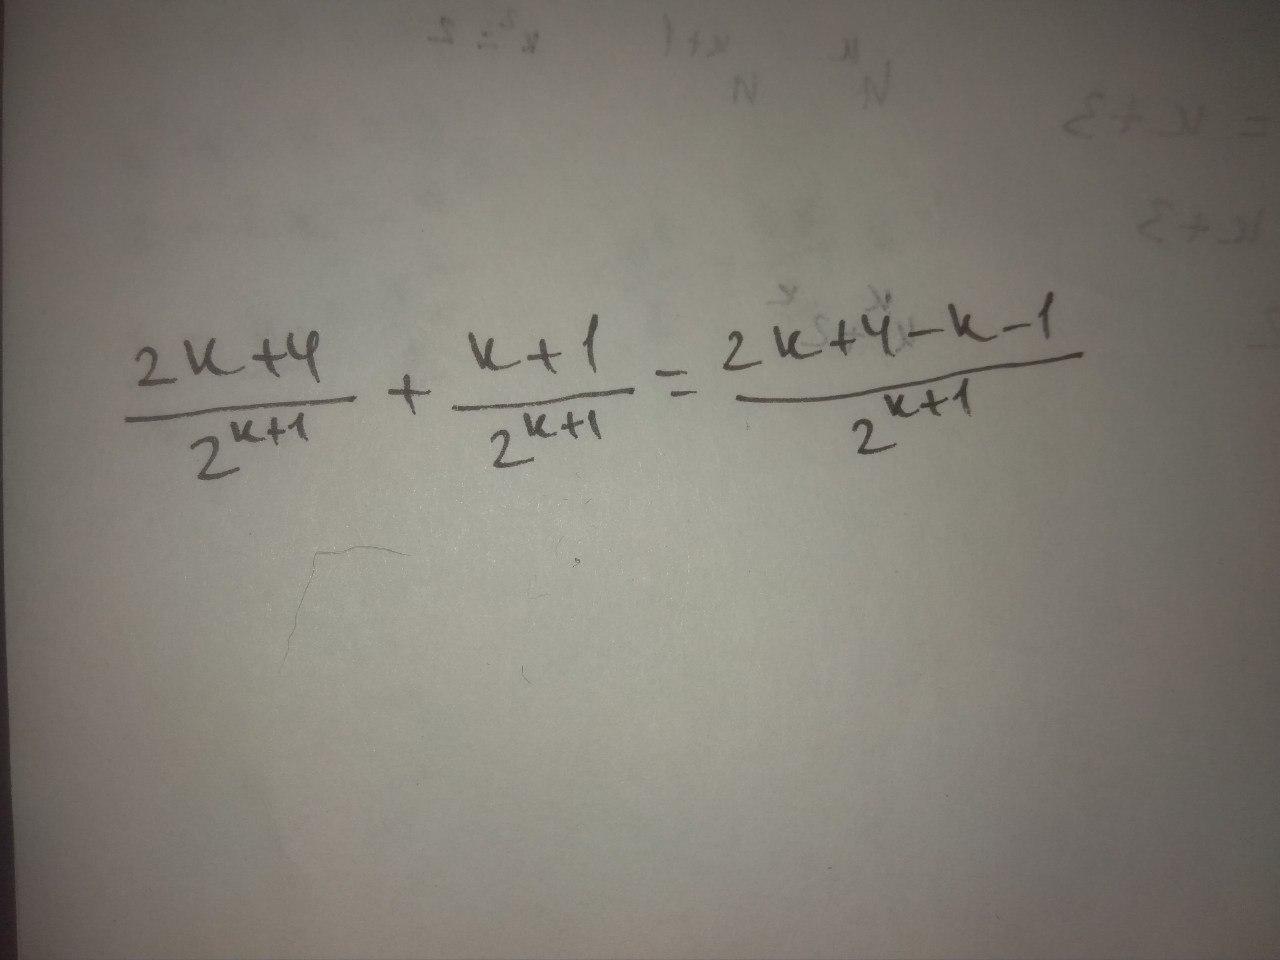 (2k+4)/2^(k+1) + (k+1)/2^(k+1) = (2k+4-k-1)/2^(k+1)